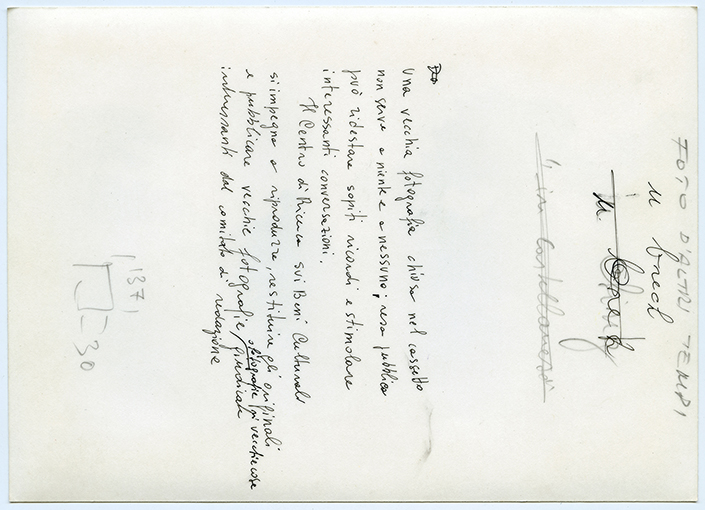 FOTO D'ALTRI TEMPI
u brech
Una vecchia fotografia chiusa nel cassetto
non serve a niente e a nessuno; resa pubblica
può ridestare sopiti ricordi e stimolare
interessanti conversazioni.
Il Centro di Ricerca sui Beni Culturali
si impegna a riprodurre, restituire gli originali
o fotografie di vecchie cose
e pubblicare vecchie fotografie, giudicate
interessanti dal comitato di redazione
137
= 30